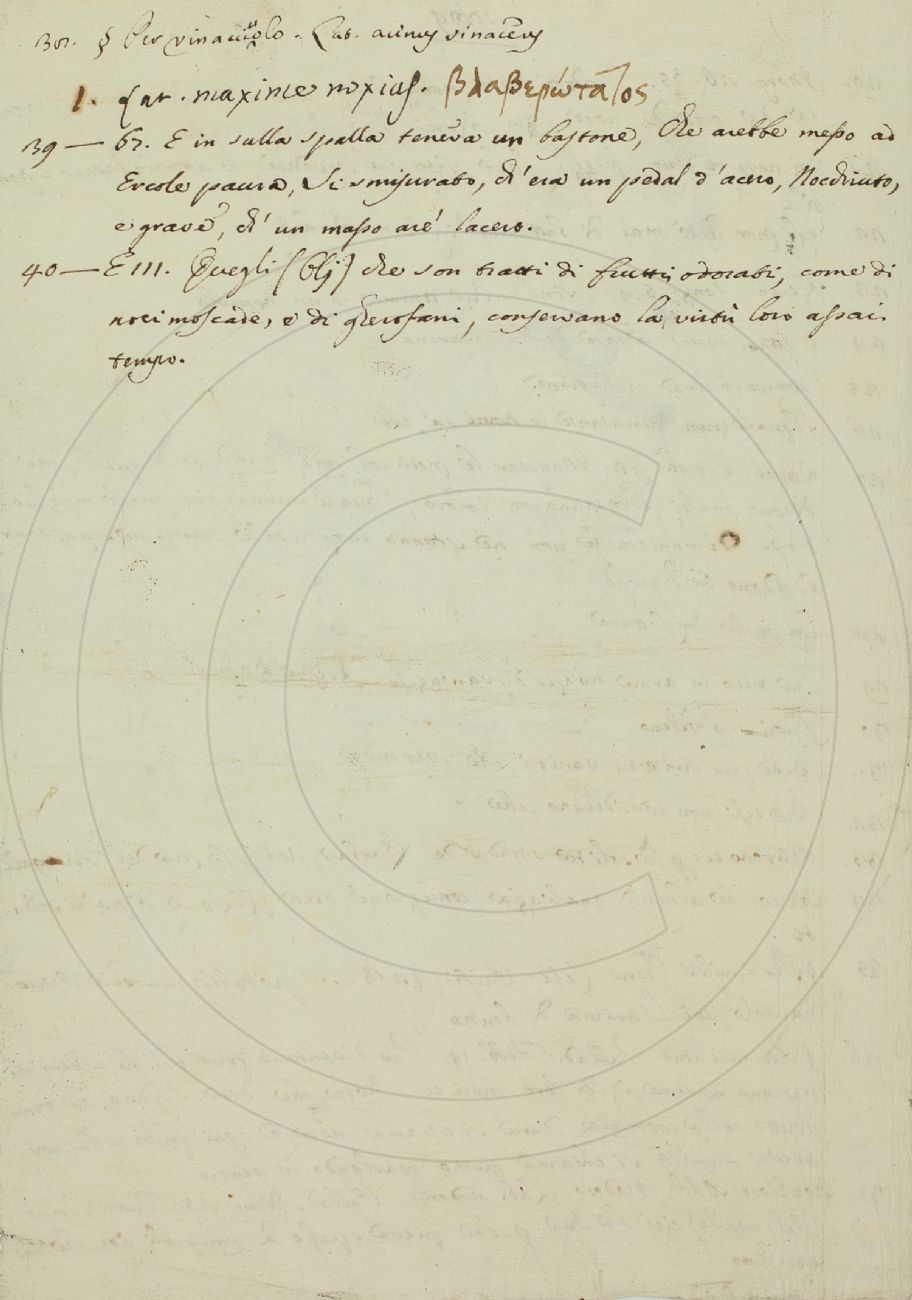 301. § Per vinacciuolo. Lat. acinus vinaceus
1. Lat. maxime noxius. βλαβερώτατος
39 — 67. E in sulla spalla teneva un bastone, Che arebbe messo ad
Ercole paura, Sì smisurato, ch'era un pedal d'acero, Nocchiuto,
e grave, ch' un masso are' lacero.
40 — E 111. Quegli [Olj] che son tratti di frutti odorati, come di
noci moscade, e di gherofani, conservano la virtù loro assai
tempo.